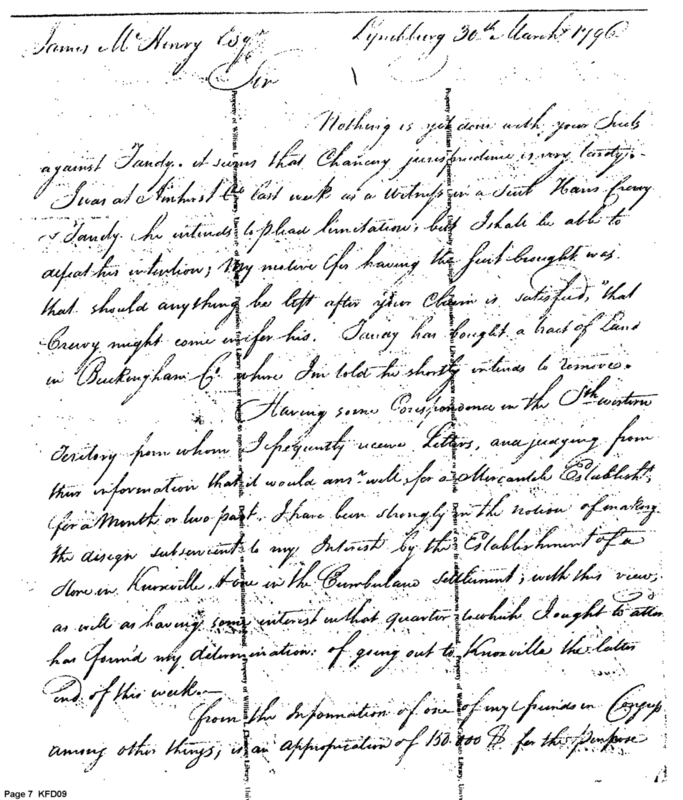 James McHenry Esqr Lynchburg 30th March 1796
Sir
Nothing is yet done with your Suits
against Tandy. it seems that Chancery jurisprudence is very tardy.
I was at Amherst Co last week as a Witness in a Suit Hans Crevy
v Tandy. he intends to plead limitation, but I shall be able to
defeat his intention; My motive for having the suit brought was
that should anything be left after your Claim is satisfied, that
Crevy might come in for his. Tandy has bought a tract of Land
in Buckingham Co. where I'm told he shortly intends to remove.
Having some Correspondence in the Sthwestern
Territory from whom I frequently receive Letters, and judging from
their information that it would ansr. well, for a Mercantile Establisht.
for a Month or two past, I have been strongly in the notion of making
the design subservient to my Interest by the Establishment of a
Store in Knoxville & one in the Cumberland Settlement; with this view,
as well as having some interest in that quarter to which I ought to atten
has found my determination of going out to Knoxville the latter
end of this week.
from the Information of one of my friends in Congress
among other things, is an appropriation of 150.000 $ for the purpose
Page 7 KFD09